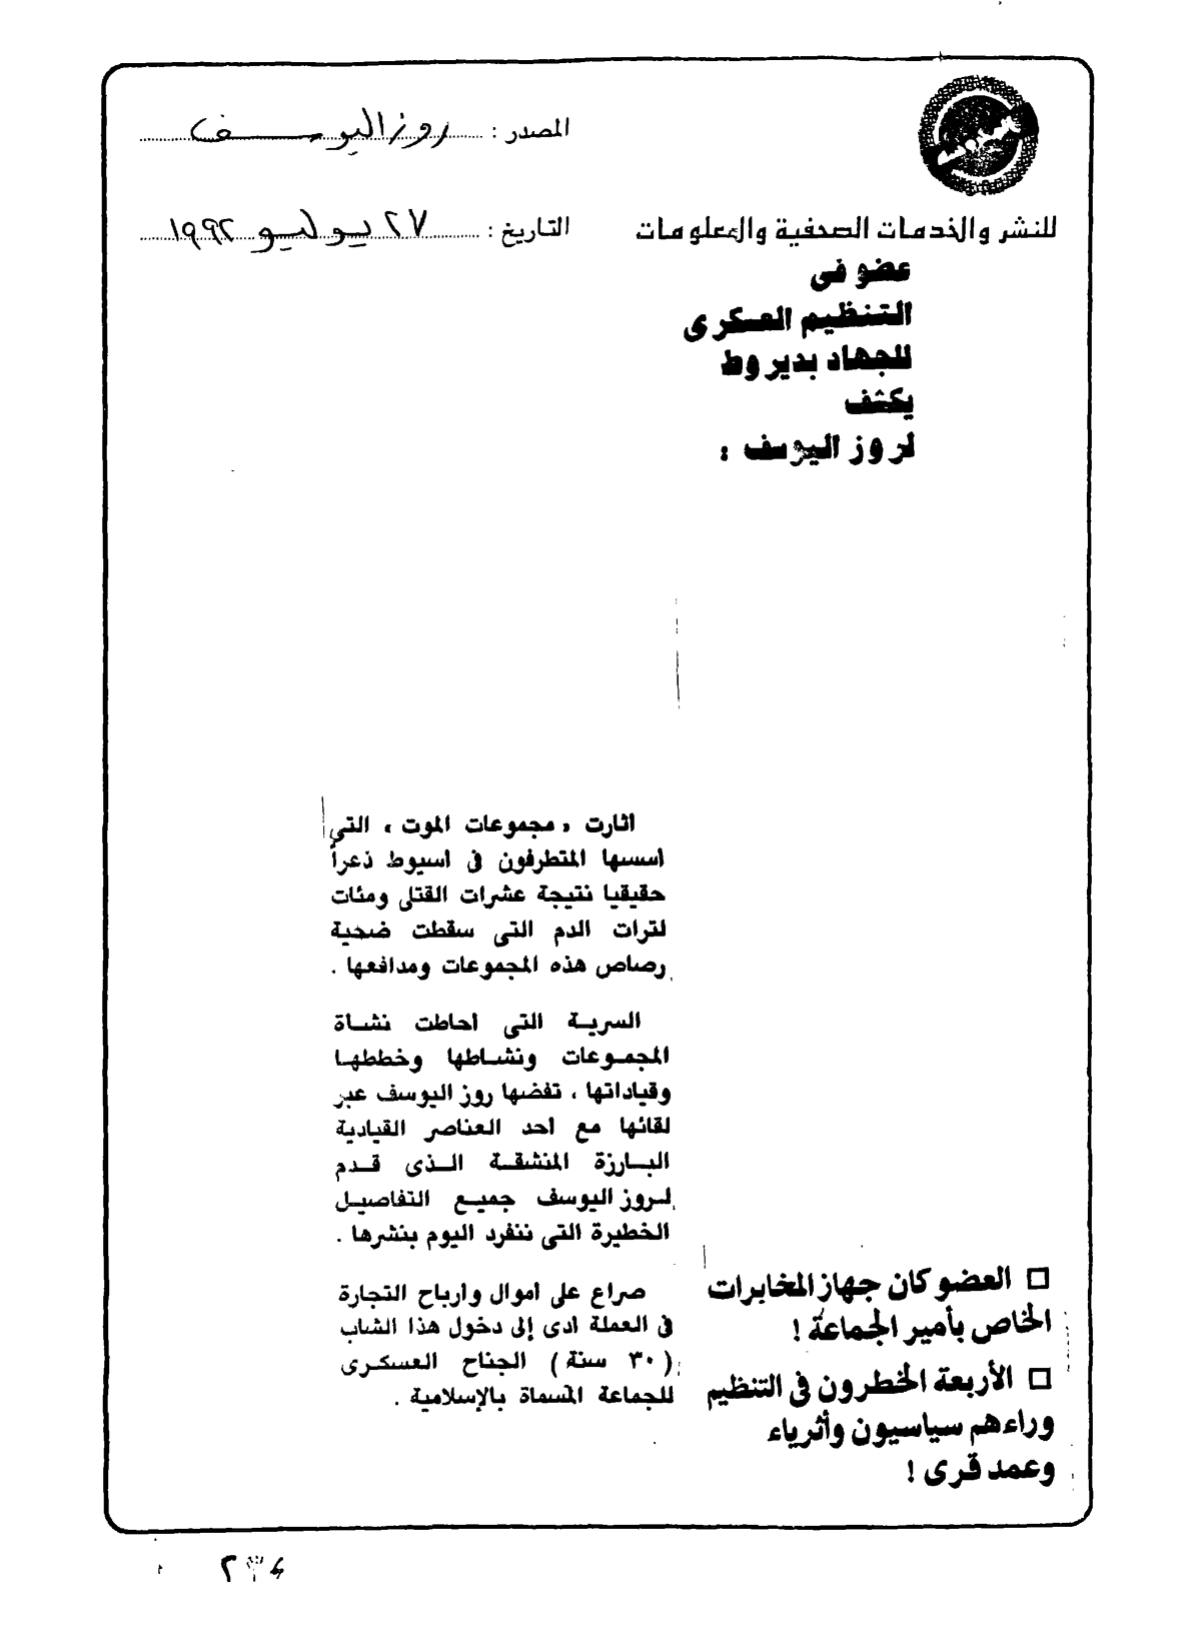 المصدر : روز اليوسف
للنشر والخدمات الصحفية والمعلومات
التاريخ : ٢٧ يوليو ١٩٩٢
عضو فى
التنظيم العسكرى
للجهاد بديروط
يكشف
لروز اليوسف :
اثارت « مجموعات الموت » التى
اسسها المتطرفون فى اسيوط ذعراً
حقيقيا نتيجة عشرات القتلى ومئات
لترات الدم التى سقطت ضحية
رصاص هذه المجموعات ومدافعها .
السرية التى احاطت نشاة
المجموعات ونشاطها وخططها
وقياداتها ، تفضها روز اليوسف عبر
لقائها مع احد العناصر القيادية
البارزة المنشقة الذى قدم
لروز اليوسف جميع التفاصيل
الخطيرة التى ننفرد اليوم بنشرها .
صراع على اموال وارباح التجارة
فى العملة ادى إلى دخول هذا الشاب
( ٣٠ سنة ) الجناح العسكرى
للجماعة المسماة بالإسلامية .
□ العضو كان جهاز المخابرات
الخاص بأمير الجماعة !
□ الأربعة الخطرون فى التنظيم
وراءهم سياسيون وأثرياء
وعمد قرى !